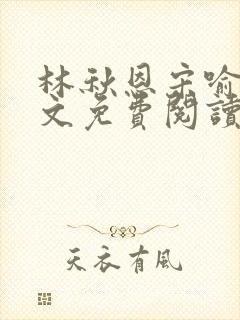 林秋恩宋喻
文免費閱讀
天衣有風